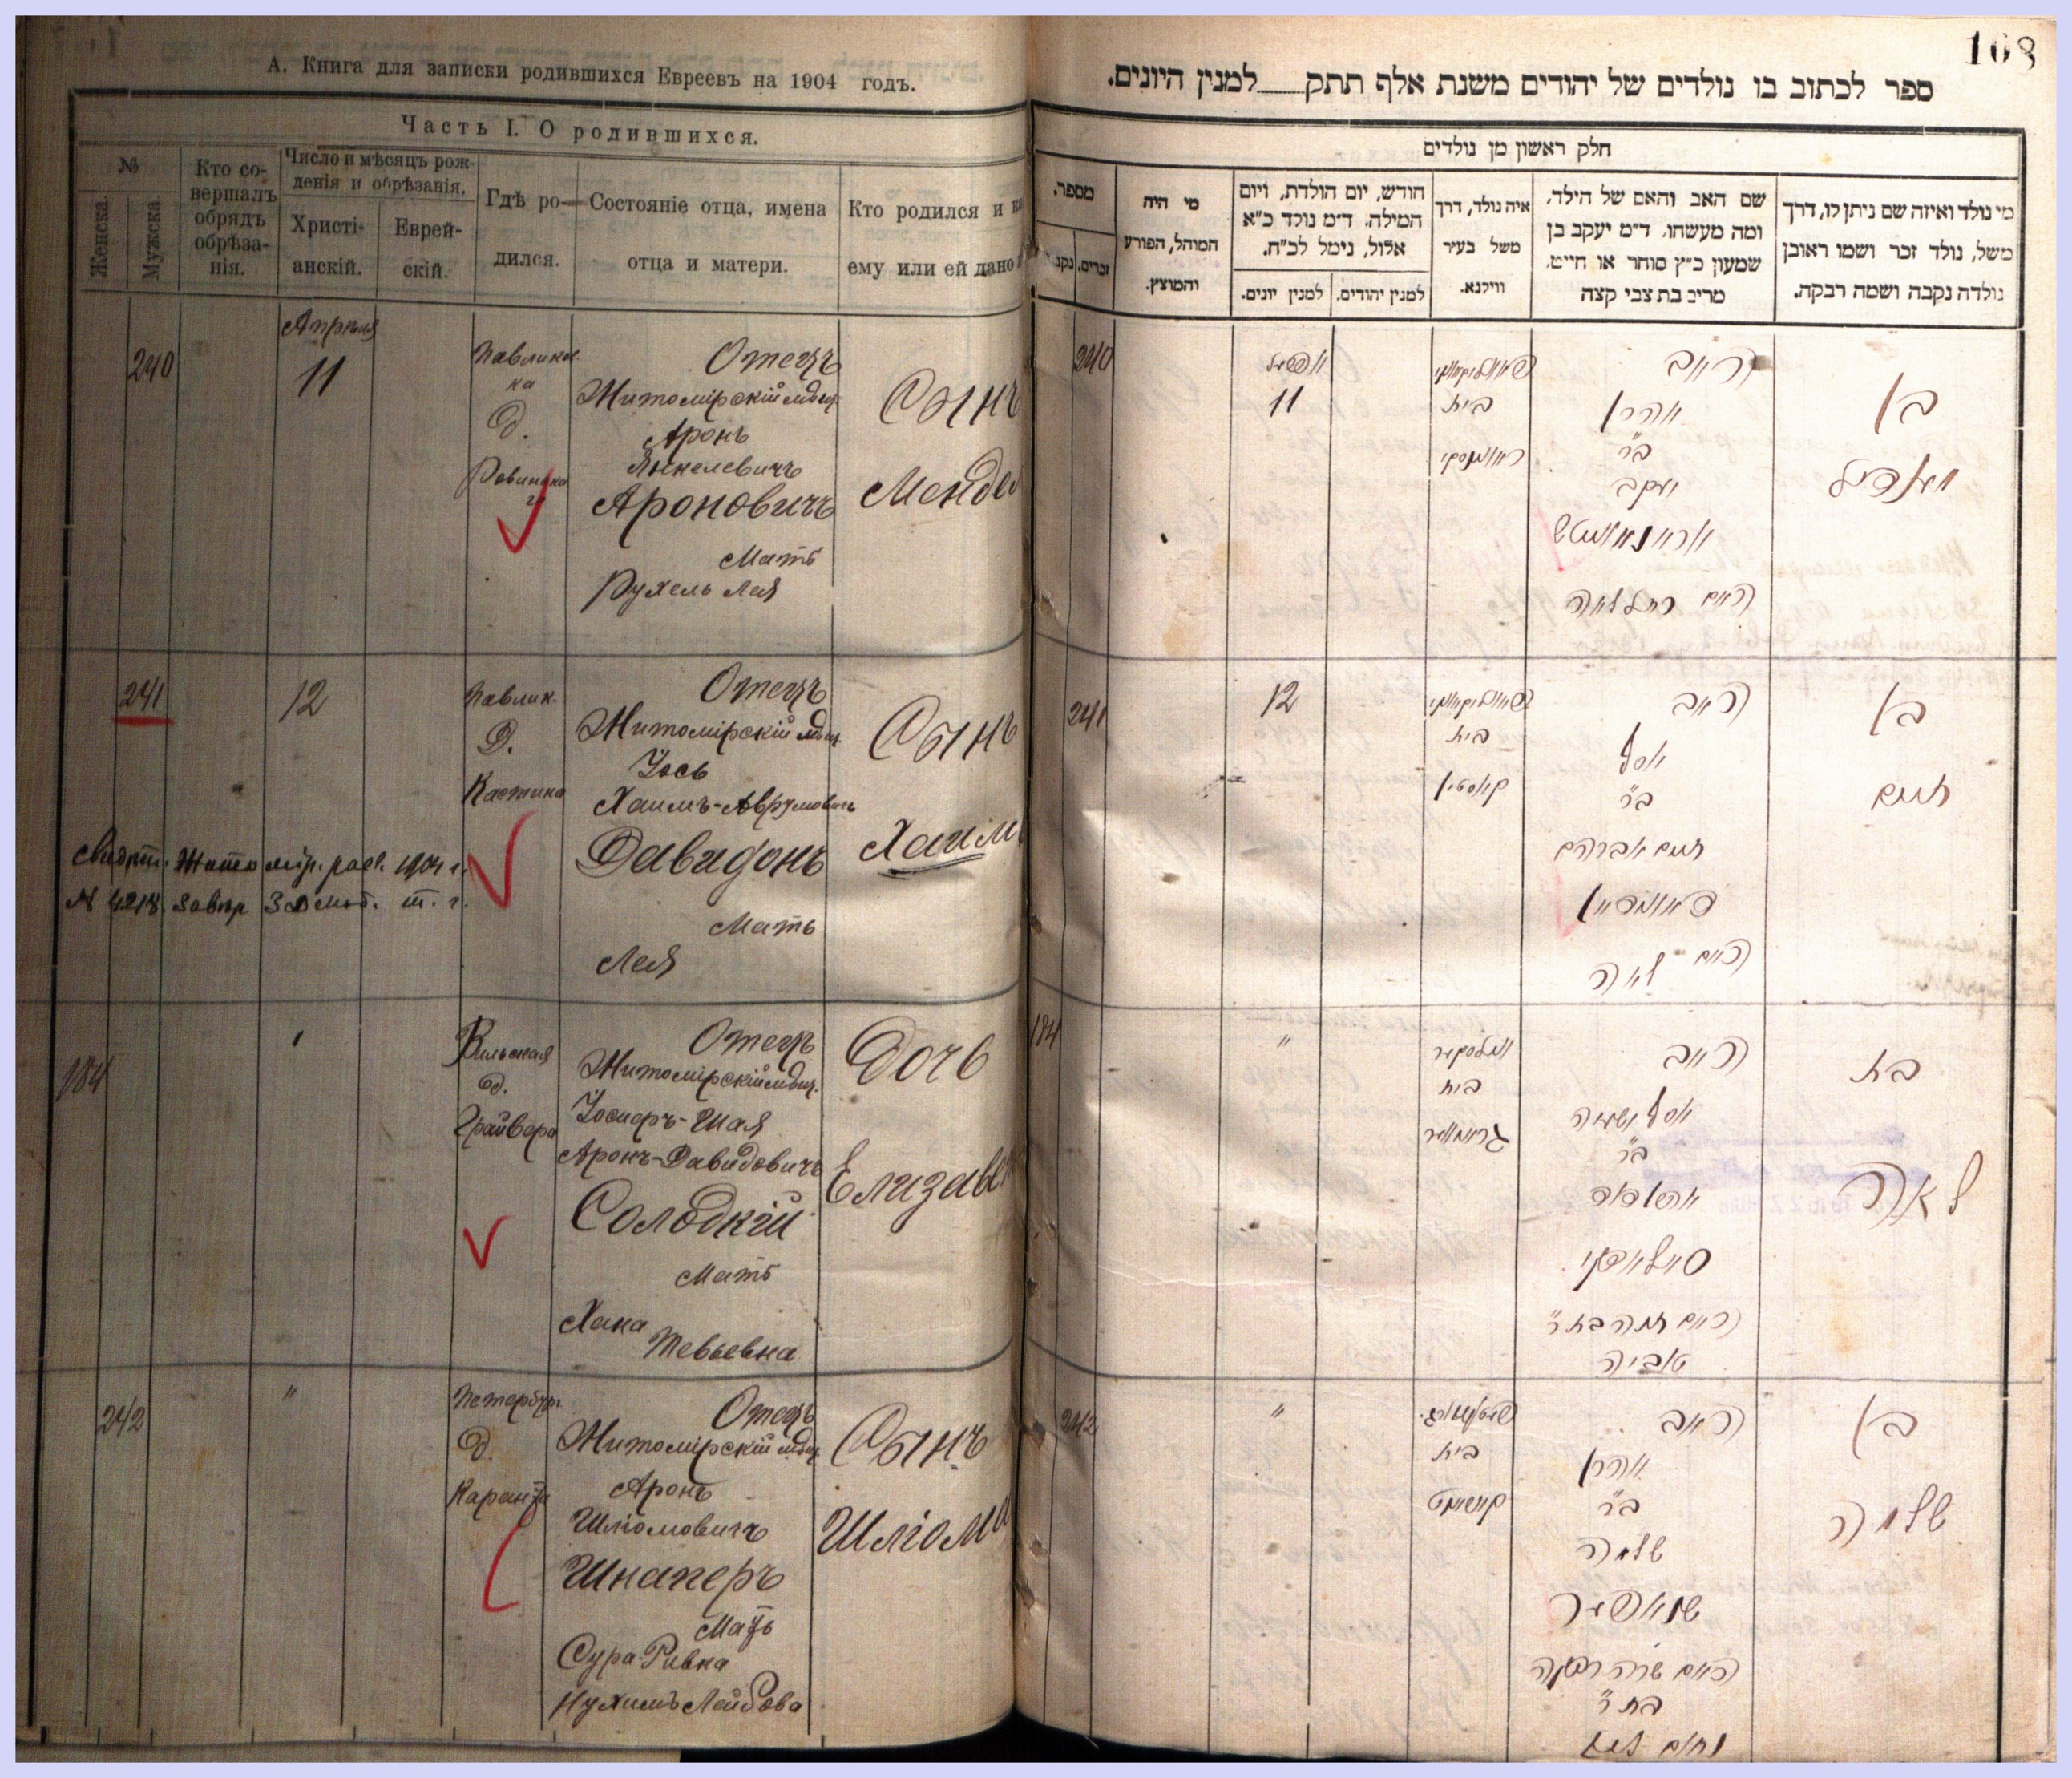 А. Книга для записки родившихся Евреевъ на 1904 годъ.
Часть I. О родившихся.
№
Женска.
Мужска
Кто со-
вершалъ
обрядъ
обрѣза-
нія.
Число и мѣсяцъ рож-
денія и обрѣзанія.
Христі-
анскій.
Еврей-
скій.
Гдѣ ро-
дился.
Состояніе отца, имена
отца и матери.
Кто родился и
ему или ей дано
240
Апрѣля
11
д.
Отецъ
Житомірскій мѣщ.
Аронъ
Янкелевичъ
Ароновичъ
Мать
Рухель Лея
Сынъ
Мендел
241
12
Павлик.
Д.
Костина
Отецъ
Житомірскій мѣщ.
Іось
Хаимъ-Аврумовичъ
Давидонъ
Мать
Лея
Сынъ
Хаим
1904 г.
№ 4218
т. г.
184
Вильская
д.
Грайвера
Отецъ
Житомірскій мѣщ.
Іосифъ-Шая
Аронъ-Давидовичъ
Солодкій
Мать
Хана
Тевьевна
Дочь
Елизавет
242
"
д.
Отецъ
Житомірскій мѣщ.
Аронъ
Шліомовичъ
Шнаперъ
Мать
Сура-Ривка
Нухимъ Лейбова
Сынъ
Шліома
108
ספר לכתוב בו נולדים של יהודים משנת אלף תתק___למנין היונים.
חלק ראשון מן נולדים
מספר.
זכרים.
נקב
מי היה
המוהל, הפורע
והמוצץ.
חודש, יום הולדת, ויום
המילה. ד״מ נולד כ״א
אלול, נימל לכ״ח.
למנין יהודים.
למנין יונים.
איה נולד, דרך
משל בעיר
ווילנא.
שם האב והאם של הילד,
ומה מעשהו. ד״מ יעקב בן
שמעון כ״ץ סוחר או חייט,
מרים בת צבי קצה
מי נולד ואיזה שם ניתן לו, דרך
משל, נולד זכר ושמו ראובן
נולדה נקבה ושמה רבקה.
240
11
בית
האב
אהרן
ב״ר
יעקב
האם רחל לאה
בן
מענדיל
241
12
בית
האב
יוסף
ב״ר
חיים אברהם
האם לאה
בן
חיים
184
"
בית
האב
יוסף ישעיה
ב״ר
האם חנה בת ר״
טוביה
בת
לאה
242
"
בית
האב
אהרן
ב״ר
שלמה
שנאפער
האם שרה רבקה
בת ר״
בן
שלמה